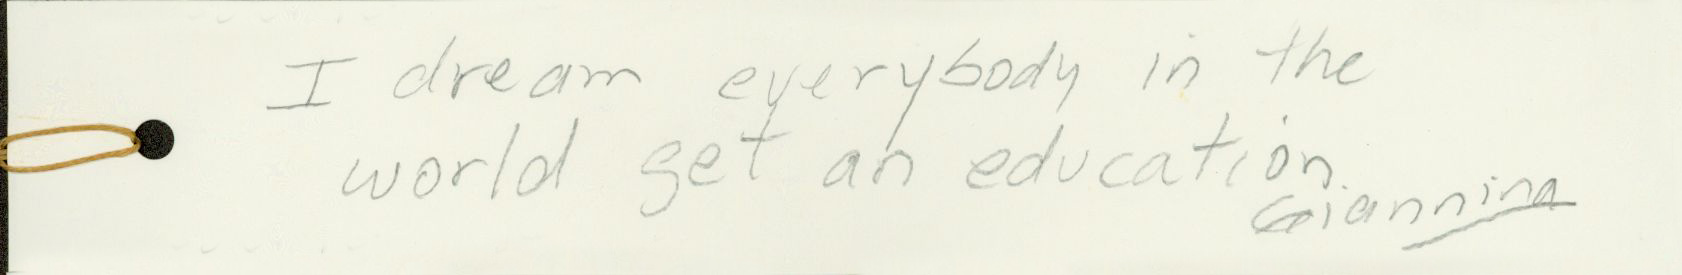 I dream everybody in the
world get an education.
Giannina